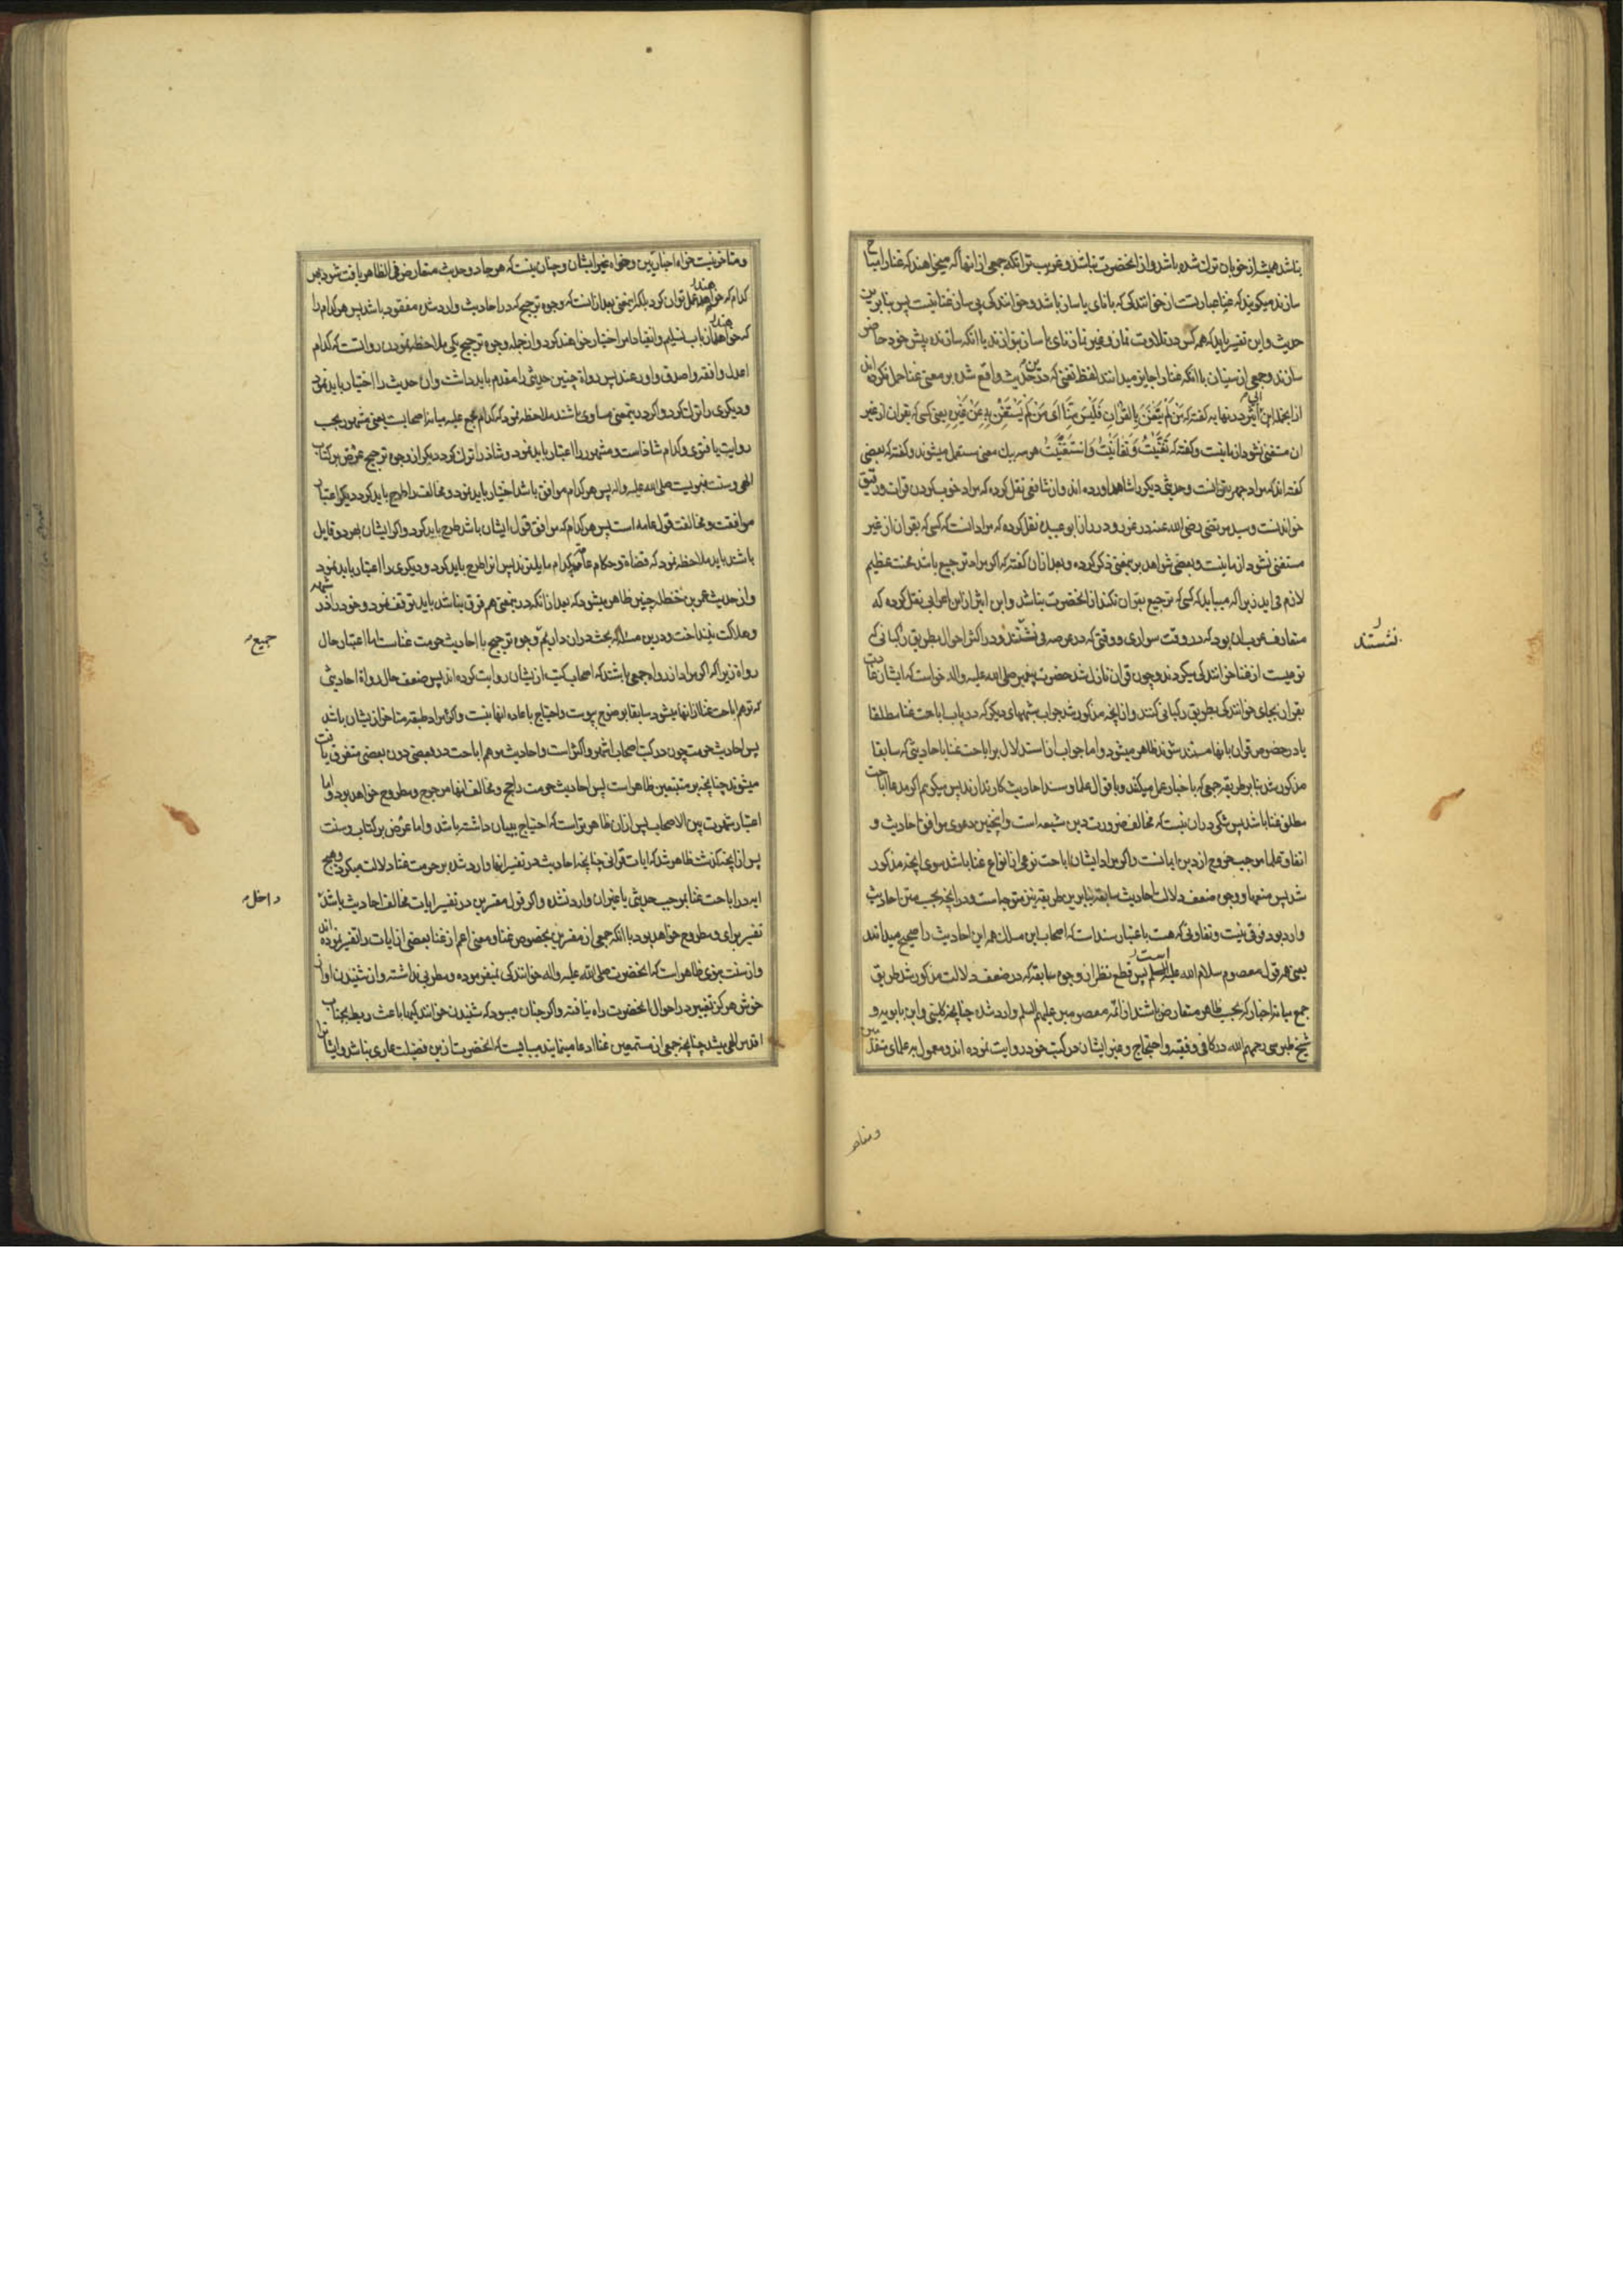 نباشد همیشه از خوبان ترک شده باشد و از انحضرت نباشد و غریب‌تر انکه جمعی از انها که میخواهند که غنا را مباح
سازند میکویند که غنا عبارتست از خوانندکی که با نای یا ساز باشد و خوانندکی بی ساز غنا نیست پس بنابرین
حدیث و این تفسیر باید که همه کس در تلاوت نماز و غیر نماز نای یا ساز بنوازند یا انکه سازنده پیش خود حاضر
سازند و جمعی از سنیان با انکه غنا را جایز میدانند لفظ تغنی که در این حدیث واقع شده بر معنی غنا حمل نکرده اند
از انجمله ابن اثیر در نهایه کفته که مَنْ لَمْ یَتَغَنَّ بِالقُرْانِ فَلَیْسَ مِنَّا اَی مَنْ لَمْ یَسْتَغْنِ بِهِ عَنْ غَیْرِهِ یعنی کسی که بقران از غیر
ان مستغنی نشود از ما نیست و کفته که تَغَنَّیْتُ وَ تَغَانَیْتُ وَ اسْتَغْنَیْتُ هر سه بیک معنی مستعمل میشوند و کفته که بعضی
کفته اند که مراد جهر بقرائت و حدیثی دیکر را شاهد اورده اند و از شافعی نقل کرده که مراد خوب کردن قرائت و رقیق
خواندنست و سید مرتضی رضی الله عنه در غرر و درر از ابو عبیده نقل کرده که مراد انست که کسی که بقران از غیر
مستغنی نشود از ما نیست و بعضی شواهد بر این معنی ذکر کرده و بعد از ان کفته که اکر مراد ترجیع باشد محنت عظیم
لازم می اید زیرا که میباید که کسی که ترجیع بقران نکند از انحضرت نباشد و ابن اثیر از ابن اعرابی نقل کرده که
متعارف عربان بود که در وقت سواری و وقتی که در عرصه می نشستند و در اکثر احوال بطریق رکبانی که
نوعیست از غنا خوانندکی میکردند و چون قران نازل شد حضرت پیغمبر صلی الله علیه و اله خواست که ایشان عادت
بقران بجای خوانندکی بطریق رکبانی کنند و از انچه مذکور شد جواب شبههای دیکر که در باب اباحت غنا مطلقا
یا در خصوص قران بانها مستند شوند ظاهر میشود و اما جواب از استدلال بر اباحت غنا باحادیثی که سابقا
مذکور شد بنابر طریقه جمعی که باخبار عمل میکنند و باقوال علما و سند احادیث کار ندارند پس میکویم اکر مدعا اباحت
مطلق غنا باشد پس شکی در ان نیست که مخالف ضرورت دین شیعه است و اینچنین دعوی موافق احادیث و
اتفاق علما موجب خروج از دین و ایمانست و اکر مراد ایشان اباحت نوعی از انواع غنا باشد سوی انچه مذکور
شد پس منعها و وجوه ضعف دلالت احادیث سابقه بنابرین طریقه نیز متوجهاست و در انچه بحسب متن احادیث
وارد بود فرقی نیست و تفاوتی که هست باعتبار سند است که اصحاب این مسلک همه این احادیث را صحیح میدانند
یعنی همه قول معصوم سلام الله علیه است پس قطع نظر از وجوه سابقه که در ضعف دلالت مذکور شد طریق
جمع میانه اخبار که بحسب ظاهر متعارض باشند از ائمه معصومین علیهم السلم وارد شده چنانچه کلینی و ابن بابویه و
شیخ طبرسی رحمهم الله در کافی و فقیه و احتجاج و غیر ایشان در کتب خود روایت نموده اند و معمول به علمای متقدمین
نشستند
و متاخر
و متاخرینست خواه اخباریین و خواه غیر ایشان و چنان نیست که هر جا دو حدیث متعارض فی الظاهر یافت شود بهر
کدام که خواهند عمل توان کرد بلکه اینمعنی بعد از انست که وجوه ترجیح که در احادیث وارد شده مفقود باشد پس هر کدام را
که خواهند از باب تسلیم و انقیاد امر اختیار خواهند کرد و از جمله وجوه ترجیح یکی ملاحظه نمودن رواتست که کدام
اعدل و افقه و اصدق و اورعند پس رواة چنین حدیثی را مقدم باید داشت و ان حدیث را اختیار باید نمود
و دیکری را ترک کرد و اکر در اینمعنی مساوی باشند ملاحظه نمود که کدام مجمع علیه میانه اصحابست یعنی مشهور بحسب
روایت یا فتوی و کدام شاذ است و مشهور را اعتبار باید نمود و شاذ را ترک کرد دیکر از وجوه ترجیح عرض بر کتاب
الهی و سنت نبویست صلی الله علیه و اله پس هر کدام موافق باشد اختیار باید نمود و مخالف را طرح باید کرد دیکر اعتبار
موافقت و مخالفت قول عامه است پس هر کدام که موافق قول ایشان باشد طرح باید کرد و اکر ایشان بهر دو قایل
باشند باید ملاحظه نمود که قضاة و حکام عامه بکدام مایلترند پس انرا طرح باید کرد و دیکری را اعتبار باید نمود
و از حدیث عمر بن حنظله چنین ظاهر میشود که بعد از انکه در اینمعنی هم فرق نباشد باید توقف نمود و خود را در شبهه
و هلاکت نینداخت و درین مسئله که بحث در ان داریم وجوه ترجیح با احادیث حرمت غناست اما اعتبار حال
رواة زیرا که اکر مراد از رواه جمعی باشند که اصحاب کتب از ایشان روایت کرده اند پس ضعف حال رواة احادیثی
که توهم اباحت غنا از انها میشود سابقا بوضوح پیوست و احتیاج باعاده انها نیست و اکر مراد طبقه متاخر از یشان باشد
پس احادیث حرمت چون در کتب اصحاب اشهر و اکثر است و احادیث موهم اباحت در بعضی دون بعضی متفرق یافت
میشوند چنانچه بر متتبعین ظاهر است پس احادیث حرمت راجح و مخالف انها مرجوح و مطروح خواهد بود و اما
اعتبار شهرت بین الاصحاب پس از ان ظاهرتر است که احتیاج ببیان داشته باشد و اما عرض بر کتاب و سنت
پس از انچه کذشت ظاهر شد که ایات قرانی چنانچه احادیث در تفسیر انها وارد شده بر حرمت غنا دلالت میکرد و هیچ
ایه در اباحت غنا بموجب حدیثی یا غیر ان وارد نشده و اکر قول مفسرین در تفسیر ایات مخالف احادیث باشد
تفسیر برای و مطروح خواهد بود با انکه جمعی از مفسرین بخصوص غنا و معنی اعم از غنا بعضی از ایات را تفسیر نموده اند
و از سنت نبوی ظاهر است که انحضرت صلی الله علیه و اله خوانندکی نمیفرموده و مطربی نداشته و از شنیدن اواز
خوش هرکز تغییر در احوال انحضرت راه نیافته و اکر چنان میبود که شنیدن خوانندکیها باعث ربط بجناب
اقدس الهی میشد چنانچه جمعی از مستمعین غنا ادعا مینمایند میبایست که انحضرت ازین فضیلت عاری نباشد و ایشان
جمیع
داخل